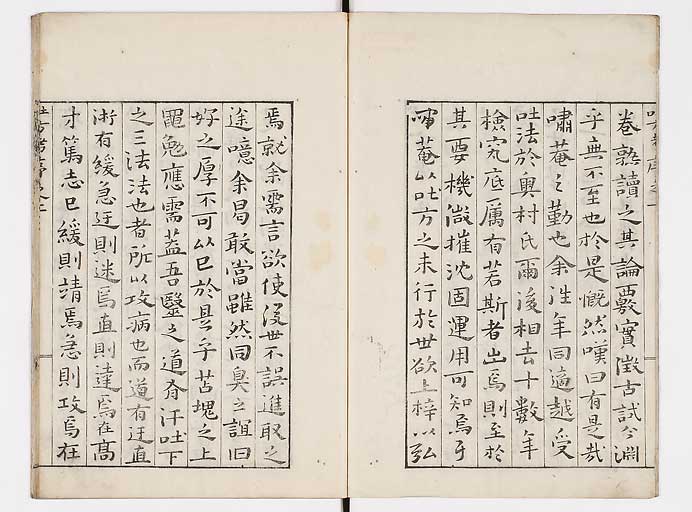 卷熟讀之其論覈實徵古試今淵
乎無不至也於是慨然嘆曰有是哉
嘯菴之勤也余往年同適越受
吐法於奥村氏爾後相去十數年
檢究底厲有若斯者出焉則至於
其要機微摧沈固運用可知焉乎
嘯菴以吐方之未行於世欲上梓以弘
焉就余需言欲使後世不誤進取之
途噫余曷敢當雖然同臭之誼旧
好之厚不可以已於是乎苫塊之上
黽勉應需蓋吾醫之道有汗吐下
之三法法也者所以攻病也而道有迂直
術有緩急迂則迷焉直則達焉在髙
才篤志已緩則靖焉急則攻焉在